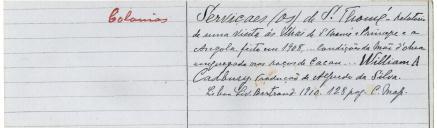 Colonias
Serviçaes (os) de S. Thomé. Relatorio
de uma visita ás Ilhas de S. Thomé e Principe e a
Angola feita em 1908... condições da mão d'obra
empregada nas roças de Cacau... William A
Cadbury tradução de Alfredo da Silva.
Lisboa Liv. Bertrand 1910. 128 pag. C. Map.